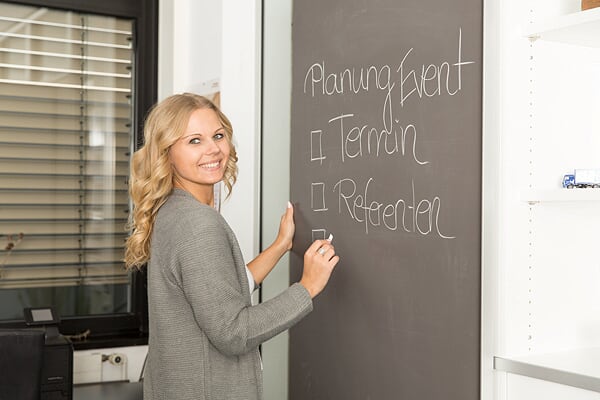 Planung Event
Termin
Referenten